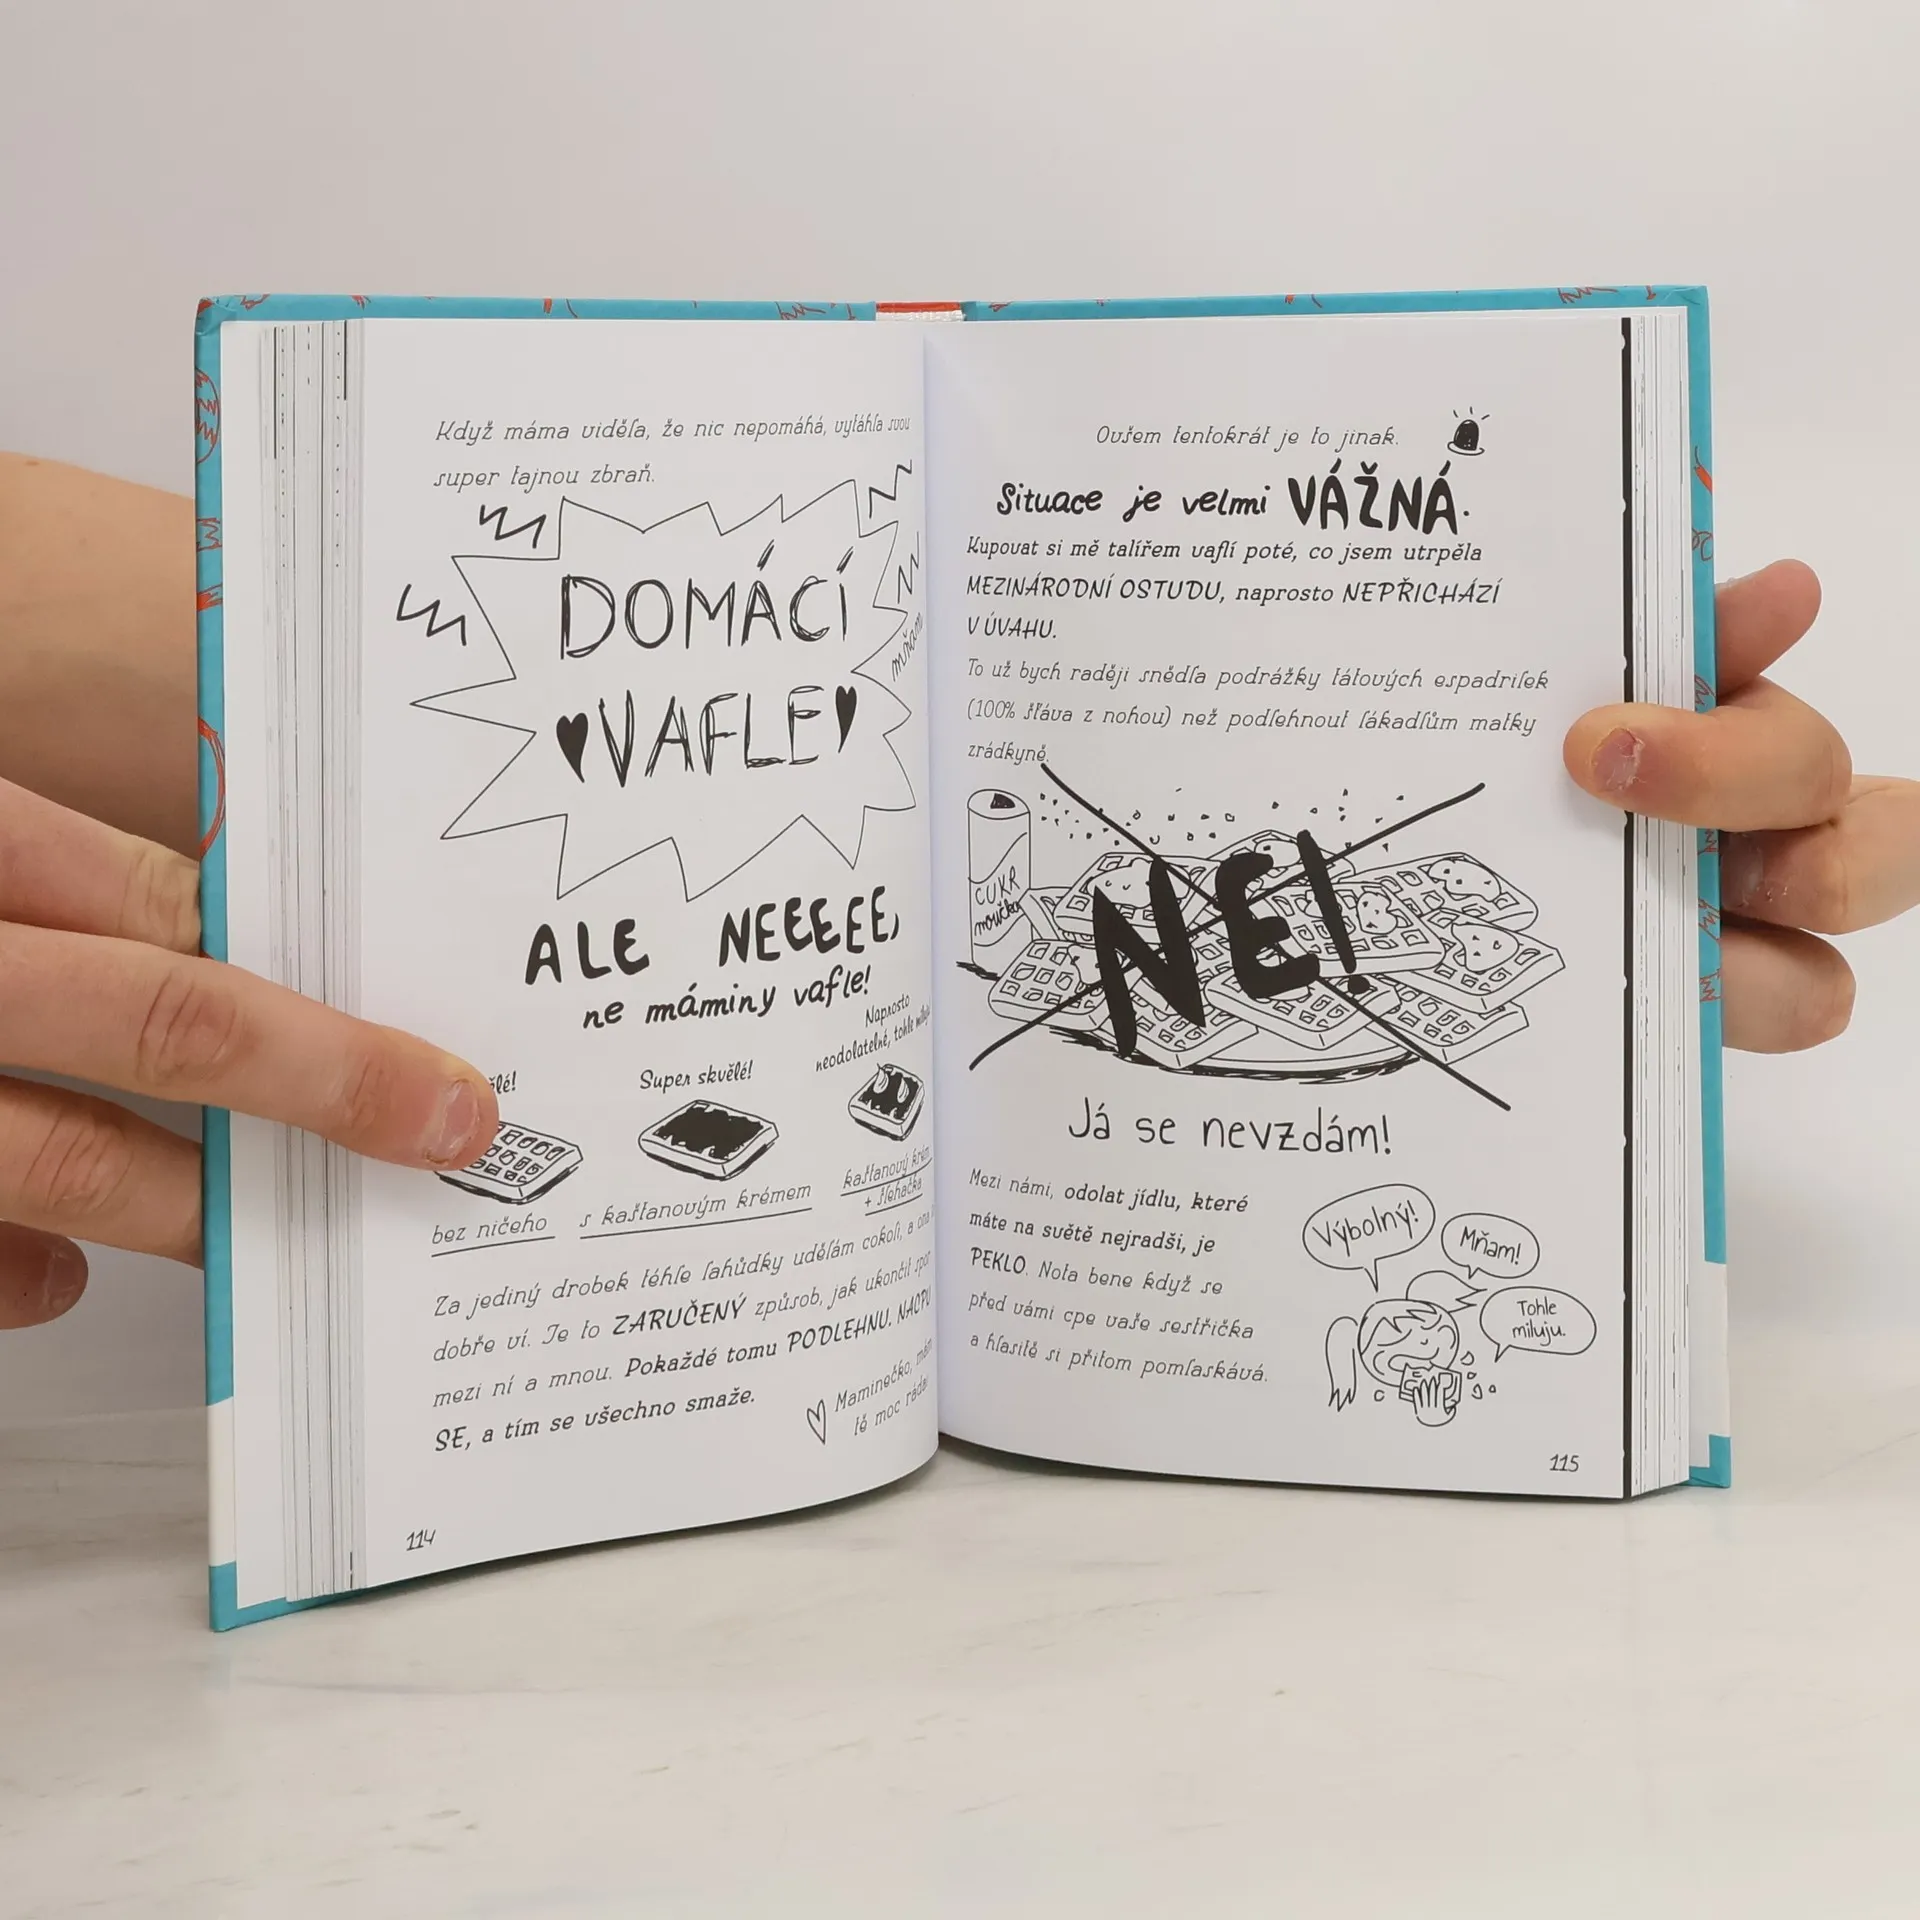 Když máma viděla, že nic nepomáhá, vytáhla svou
super tajnou zbraň.
DOMÁCÍ
VAFLE
mňam
ALE NEEEEE,
ne máminy vafle!
Super skvělé!
Naprosto
neodolatelné, tohle miluju
bez ničeho
s kaštanovým krémem
kaštanový krém
+ šlehačka
Za jediný drobek téhle lahůdky udělám cokoli, a ona
dobře ví. Je to ZARUČENÝ způsob, jak ukončit spor
mezi ní a mnou. Pokaždé tomu PODLEHNU. NACPU
SE, a tím se všechno smaže.
Maminečko, mám
tě moc ráda!
114
Ovšem tentokrát je to jinak.
Situace je velmi VÁŽNÁ.
Kupovat si mě talířem vaflí poté, co jsem utrpěla
MEZINÁRODNÍ OSTUDU, naprosto NEPŘICHÁZÍ
V ÚVAHU.
To už bych raději snědla podrážky tátových espadrilek
(100% šťáva z nohou) než podlehnout lákadlům matky
zrádkyně.
CUKR
moučka
NE!
Já se nevzdám!
Mezi námi, odolat jídlu, které
máte na světě nejradši, je
PEKLO. Nota bene když se
před vámi cpe vaše sestřička
a hlasitě si přitom pomlaskává.
Výbolný!
Mňam!
Tohle
miluju.
115